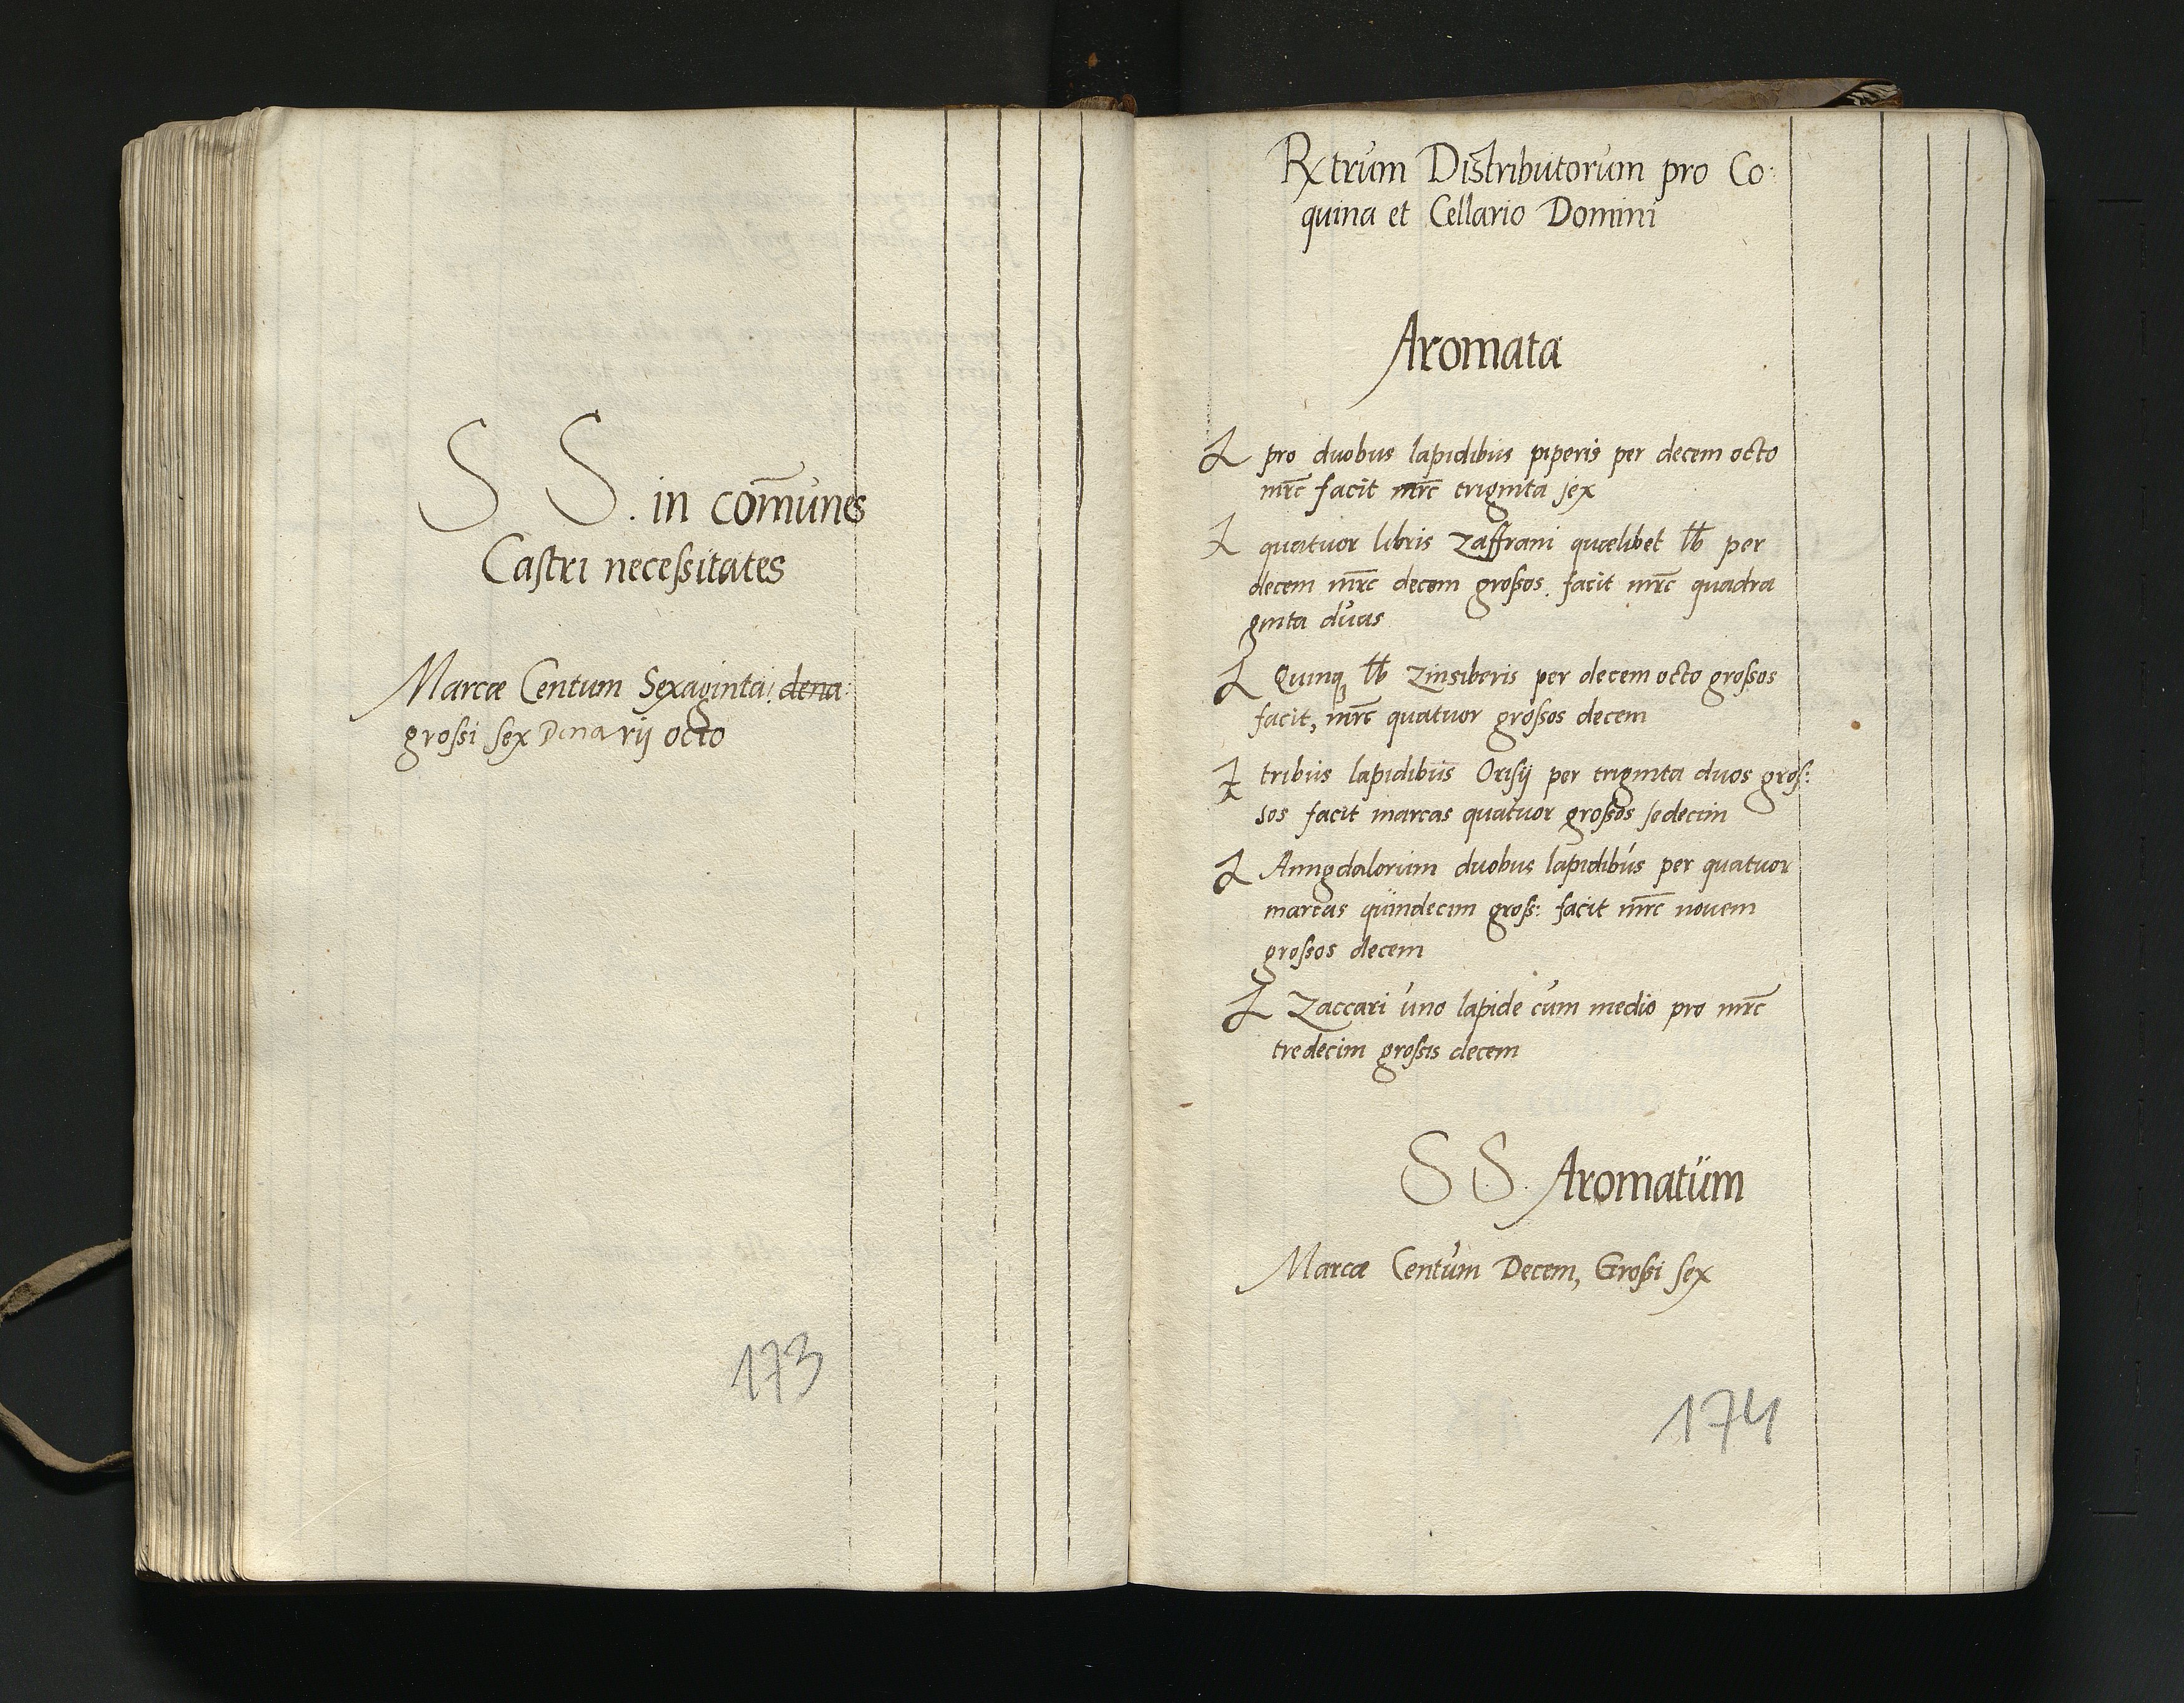 S S. in com̄unes
Castri necessitates
Marcæ Centum Sexaginta: dena:
grossi sex Denarij octo
173
Rxtrum Distributorum pro Co:
quina et Cellario Domini
Aromata
pro duobus lapidibus piperis per decem octo
mrc̄ facit mrc̄ triginta sex
quatuor libris Zaffrani quælibet lb per
decem mrc̄ decem grossos. facit mrc̄ quadra
ginta duas
Quinq lb Zinsiberis per decem octo grossos
facit, mrc̄ quatuor grossos decem
tribus lapidibus Orisij per triginta duos gros:
sos facit marcas quatuor grossos sedecim
Amigdalorum duobus lapidibus per quatuor
marcas quindecim gross: facit mrc̄ novem
grossos decem
Zaccari uno lapide cum medio pro mrc̄
tredecim grossis decem
S S. Aromatum
Marcæ Centum Decem, Grossi sex
174